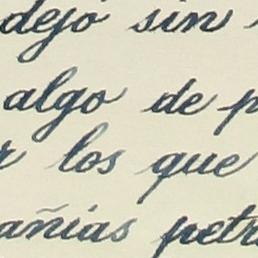 dejó sin
algo de p
r los que
añias petr